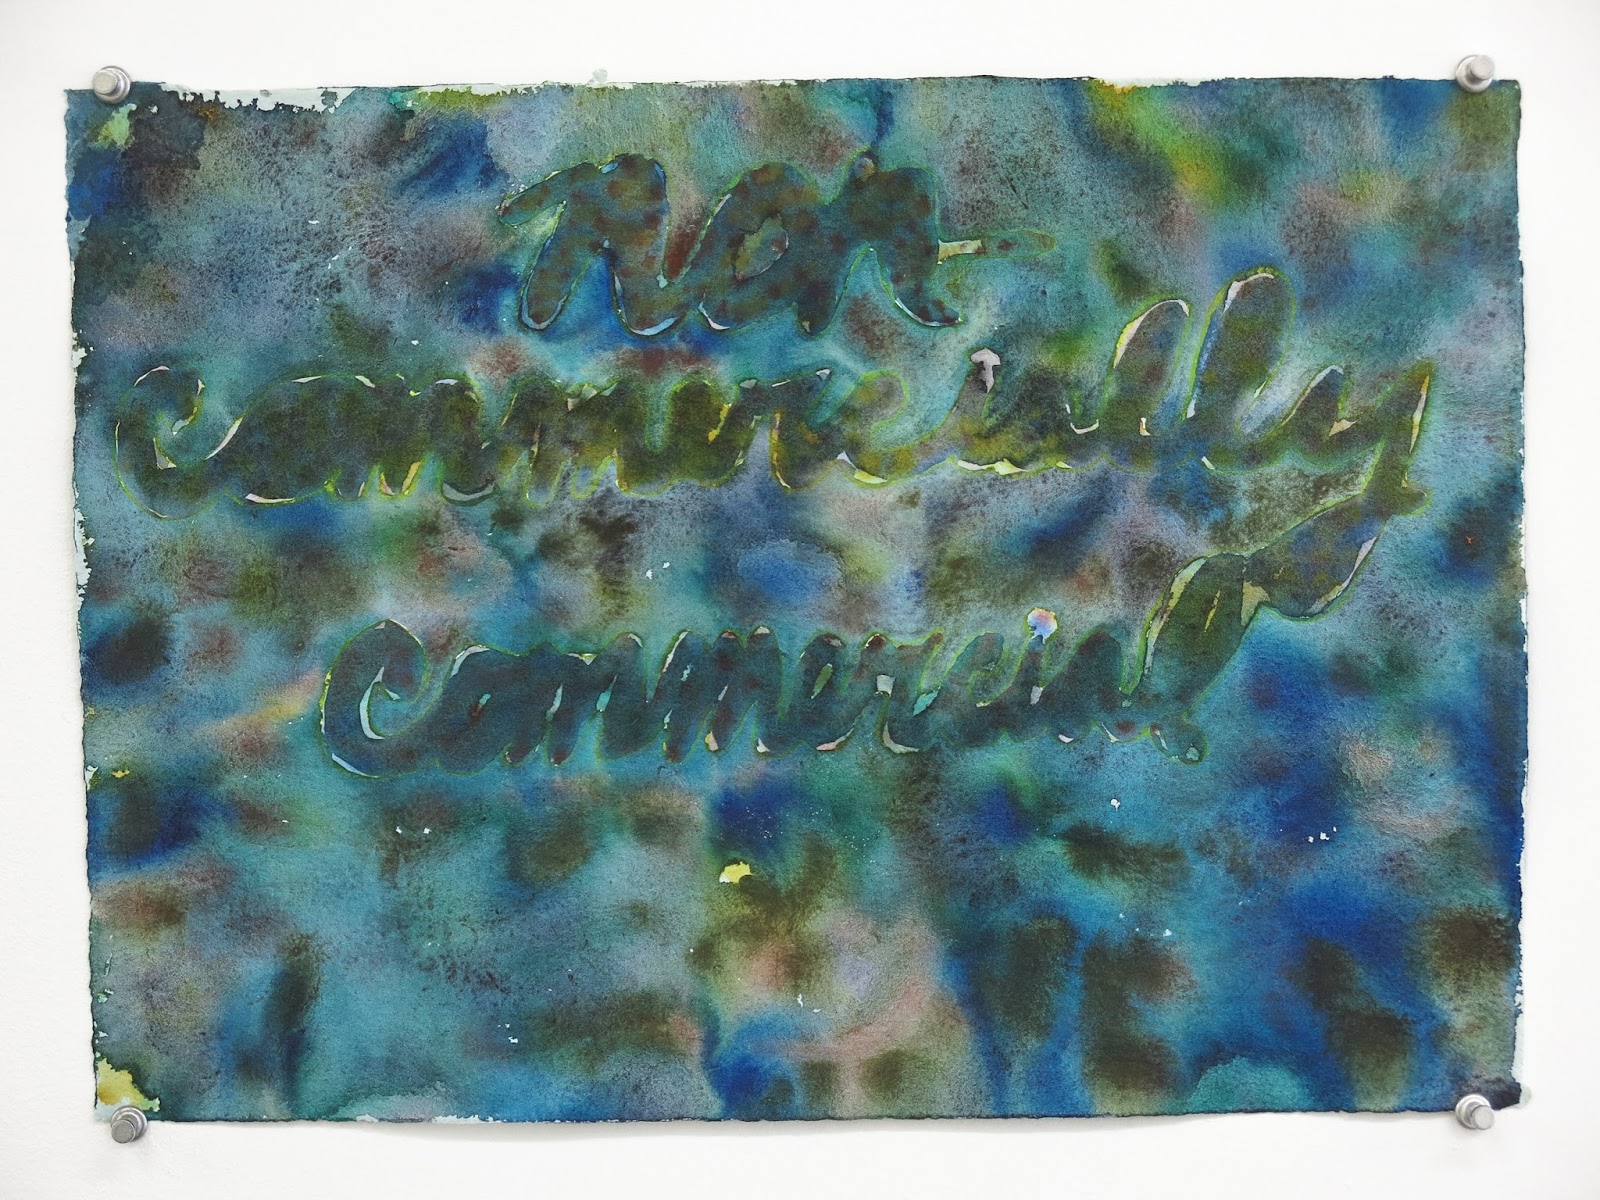 non-
commercially
commercial